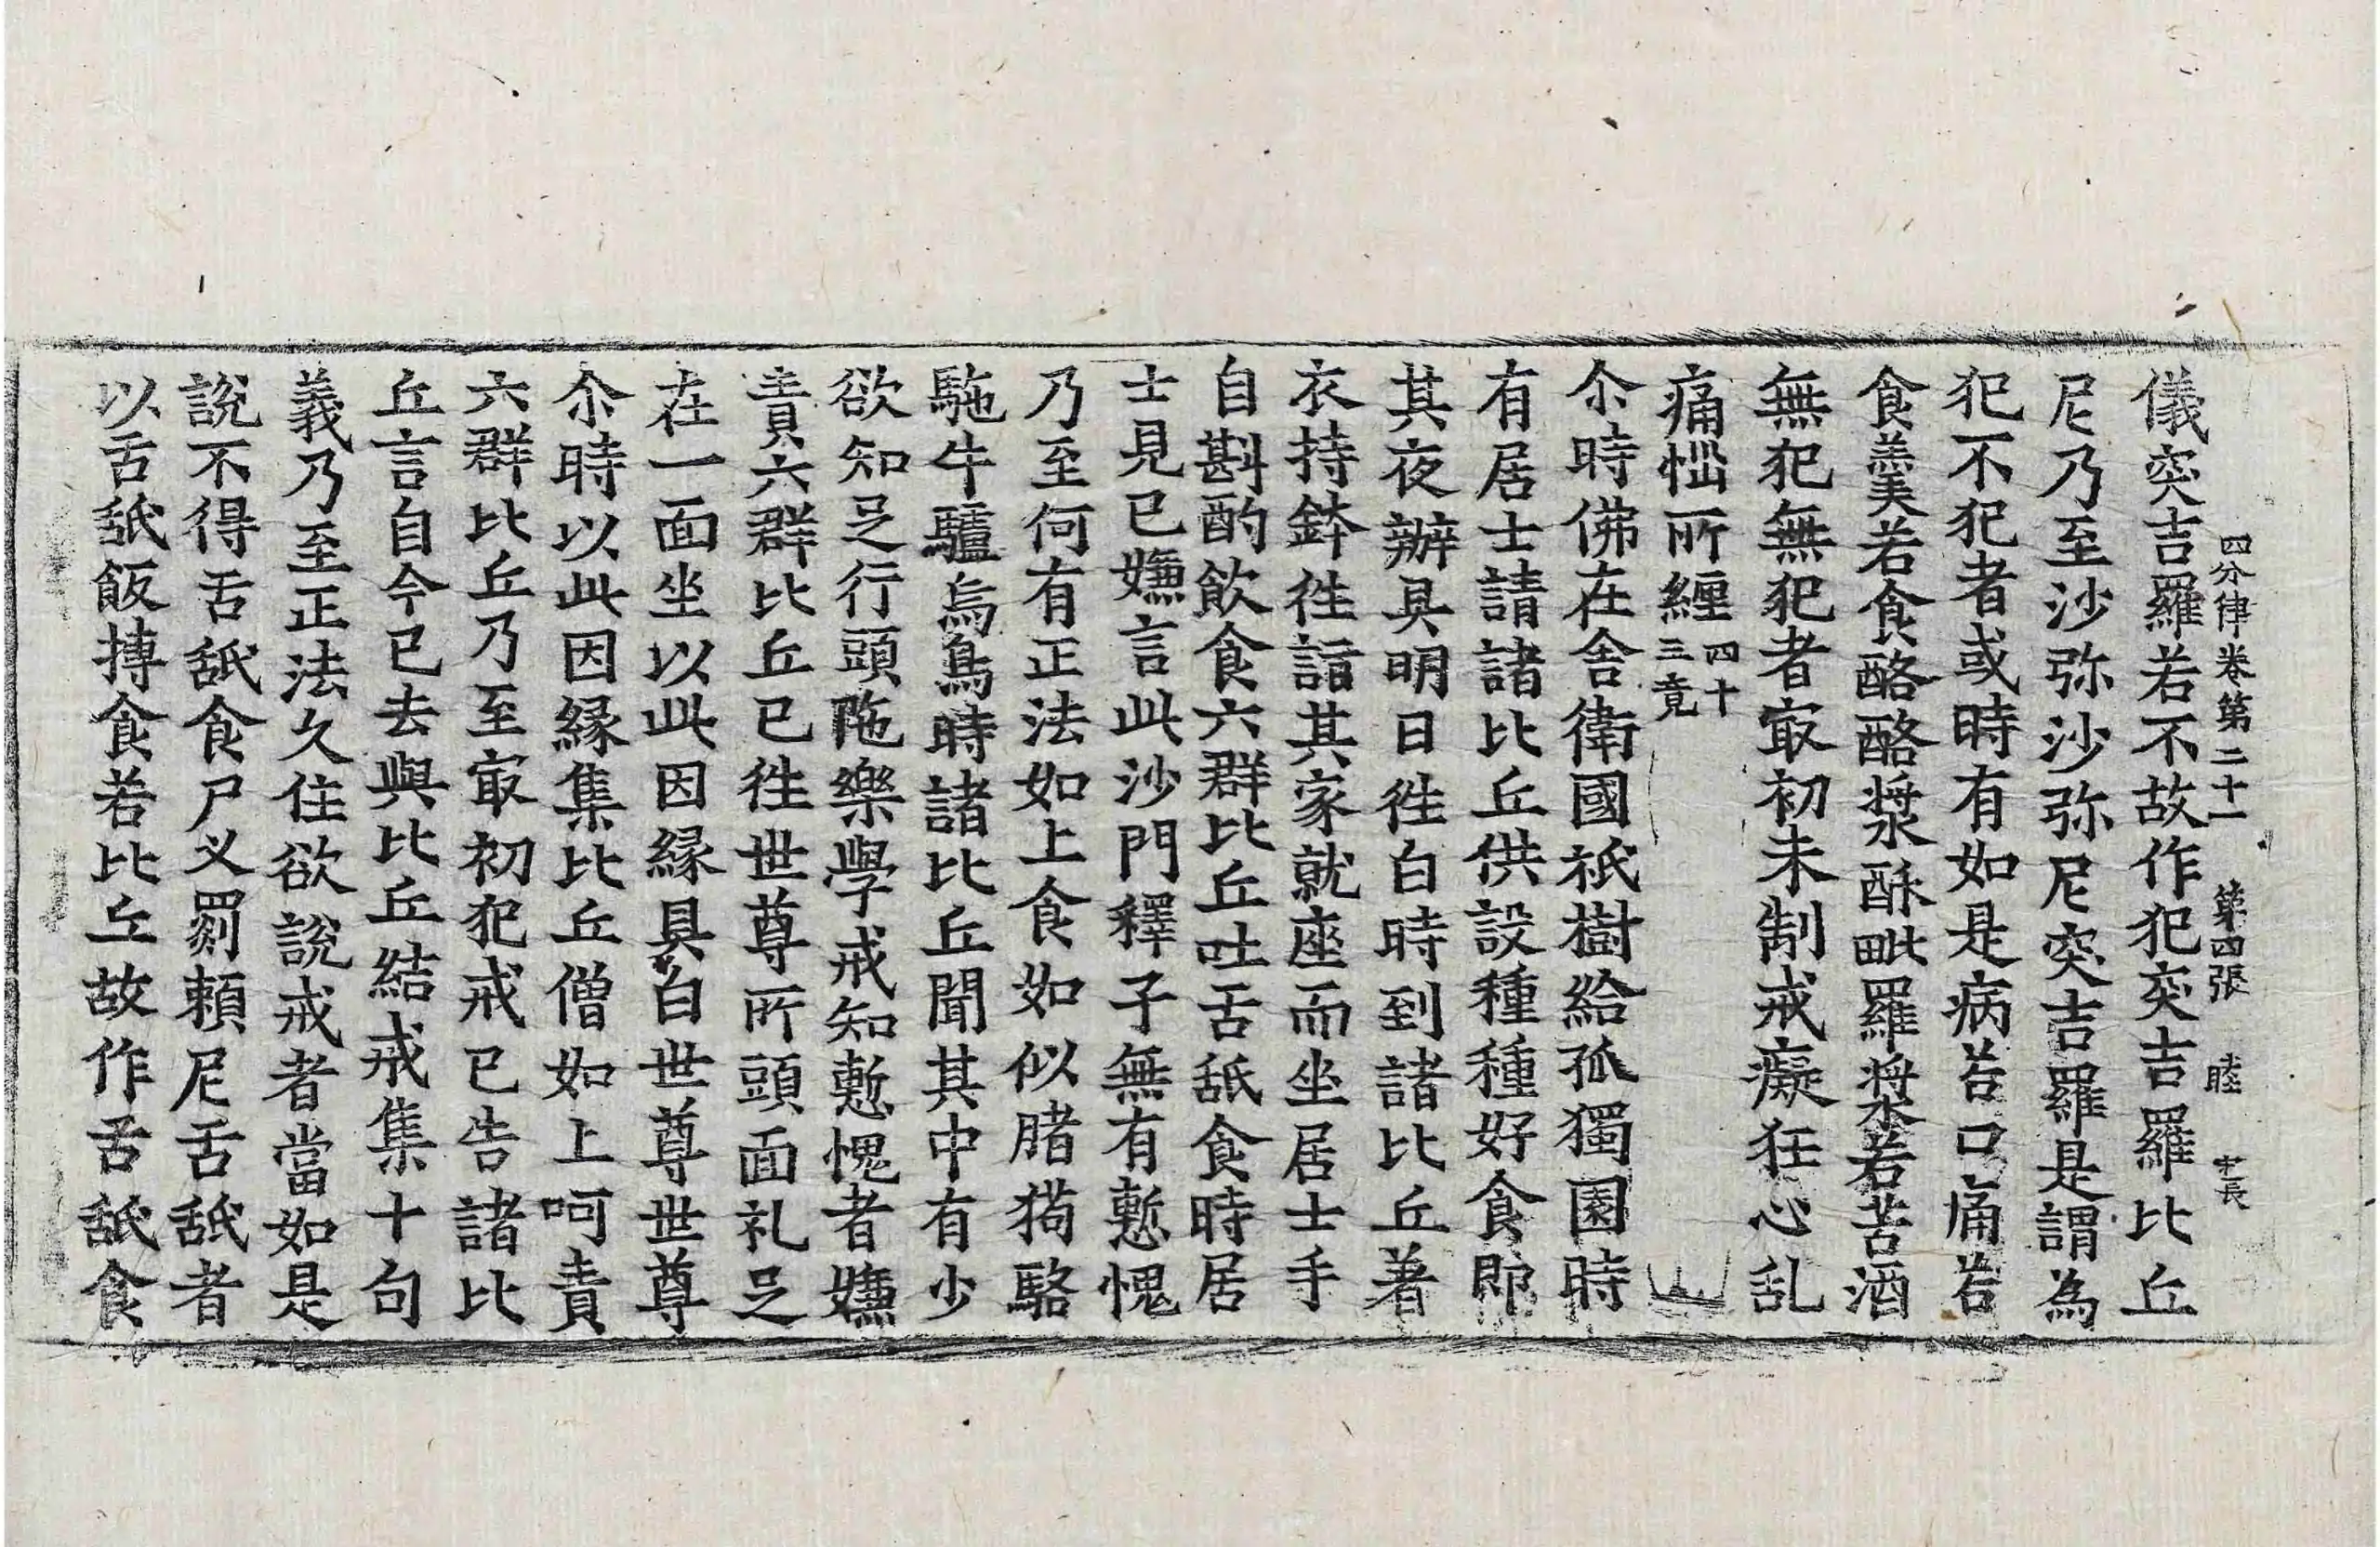 四分律卷第二十一 第四張 睦 中長
儀突吉羅若不故作犯突吉羅比丘
尼乃至沙弥沙弥尼突吉羅是謂為
犯不犯者或時有如是病若口痛若
食羹若食酪酪漿酥毗羅漿若苦酒
無犯無犯者㝡初未制戒癡狂心乱
痛惱所纏四十三竟
尒時佛在舍衛國祇樹給孤獨園時
有居士請諸比丘供設種種好食即
其夜辦具明日徃白時到諸比丘著
衣持鉢徃詣其家就座而坐居士手
自斟酌飲食六群比丘吐舌舐食時居
士見已嫌言此沙門釋子無有慙愧
乃至何有正法如上食如似賭猫駱
駞牛驢烏鳥時諸比丘聞其中有少
欲知足行頭陁樂學戒知慙愧者嫌
責六群比丘已徃世尊所頭面礼足
在一面坐以此因縁具白世尊世尊
尒時以此因縁集比丘僧如上呵責
六群比丘乃至㝡初犯戒已告諸比
丘言自今已去與比丘結戒集十句
義乃至正法久住欲說戒者當如是
說不得舌舐食尸义罽頼尼舌舐者
以舌舐飯摶食若比丘故作舌舐食